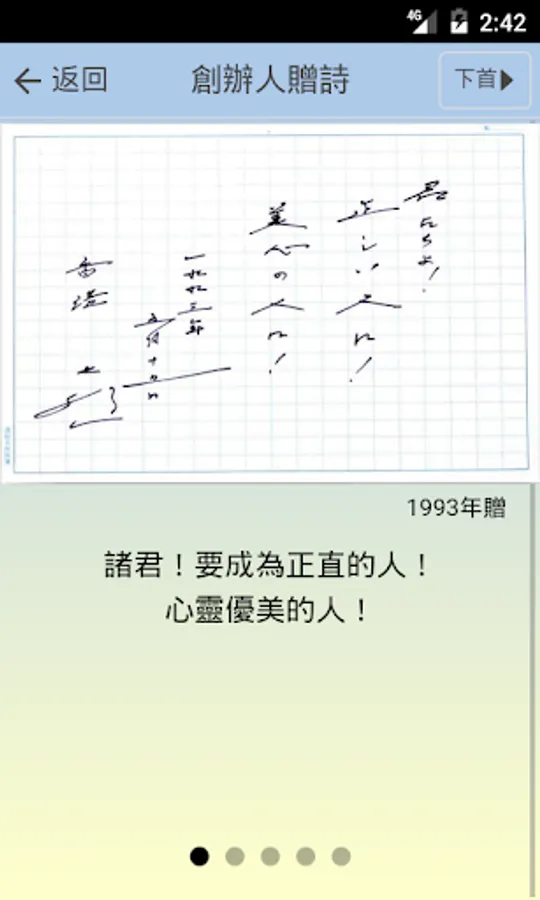 4G 2:42
返回 創辦人贈詩 下首
君たちよ!
正しい人に!
美心の人に!
一九九三年
香港
1993年贈
諸君！要成為正直的人！
心靈優美的人！